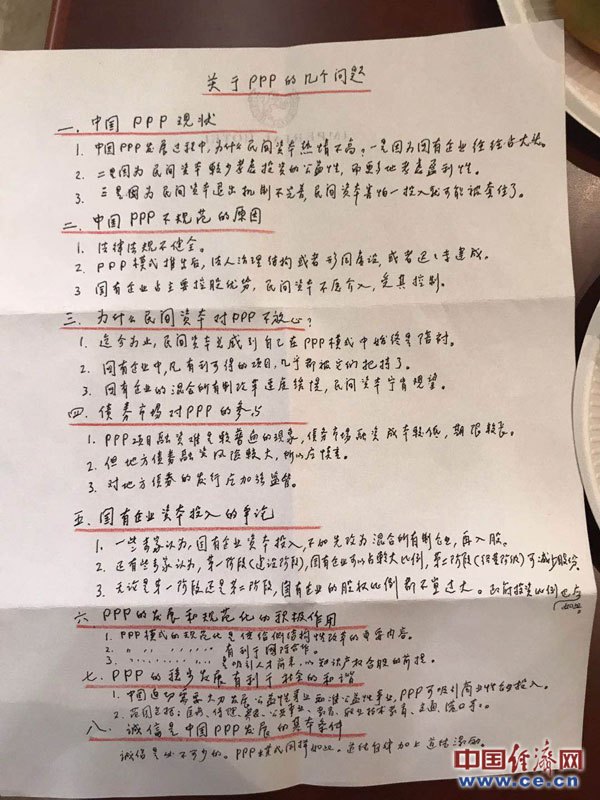 关于PPP的几个问题
一、中国PPP现状
1. 中国PPP发展过程中,为什么民间资本热情不高?一是因为国有企业往往占大头。
2. 二是因为民间资本较少考虑投资的公益性,而更多地考虑盈利性。
3. 三是因为民间资本退出机制不完善,民间资本害怕一投入就可能被套住了。
二、中国PPP不规范的原因
1. 法律法规不健全。
2. PPP模式推出后,法人治理结构或者形同虚设,或者迟迟未建成。
3 国有企业占主要控股优势,民间资本不愿介入,受其控制。
三、为什么民间资本对PPP不放心?
1. 迄今为止,民间资本总感到自己在PPP模式中始终是陪衬。
2. 国有企业中,凡有利可得的项目,几乎都被它们把持了。
3. 国有企业的混合所有制改革进度缓慢,民间资本宁肯观望。
四、债券市场对PPP的参与
1. PPP项目融资难是较普遍的现象,债券市场融资成本较低,期限较长。
2. 但地方债券融资风险较大,所以应慎重。
3. 对地方债券的发行应加强监管。
五、国有企业资本投入的争论
1. 一些专家认为,国有企业资本投入,不如先改为混合所有制企业,再入股。
2. 还有些专家认为,第一阶段(建设阶段),国有企业可以占较大比例,第二阶段(经营阶段)可减少股份。
3. 无论是第一阶段还是第二阶段,国有企业的股权比例都不宜过大。政府投资比例也应如此
六 PPP的发展和规范化的积极作用
1. PPP模式的规范化是供给侧结构性改革的重要内容。
2. 〃 〃 〃 〃 〃 〃 有利于国际合作。
3. 〃 〃 〃 〃 〃 是吸引人才前来,以知识产权入股的前提。
七、PPP的稳步发展有利于社会的和谐
1. 中国迫切需要大力发展公益性事业和准公益性事业,PPP可吸引商业性的投入。
2. 范围包括:医疗、、养老、公共事业、教育、职业技术教育、交通、港口等。
八、诚信是中国PPP发展的基本条件
诚信是必不可少的。PPP模式同样如此。道德自律加上道德激励。
中国经济网
www.ce.cn